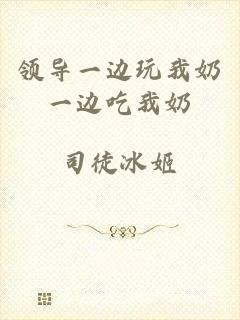 领导一边玩我奶
一边吃我奶
司徒冰姬